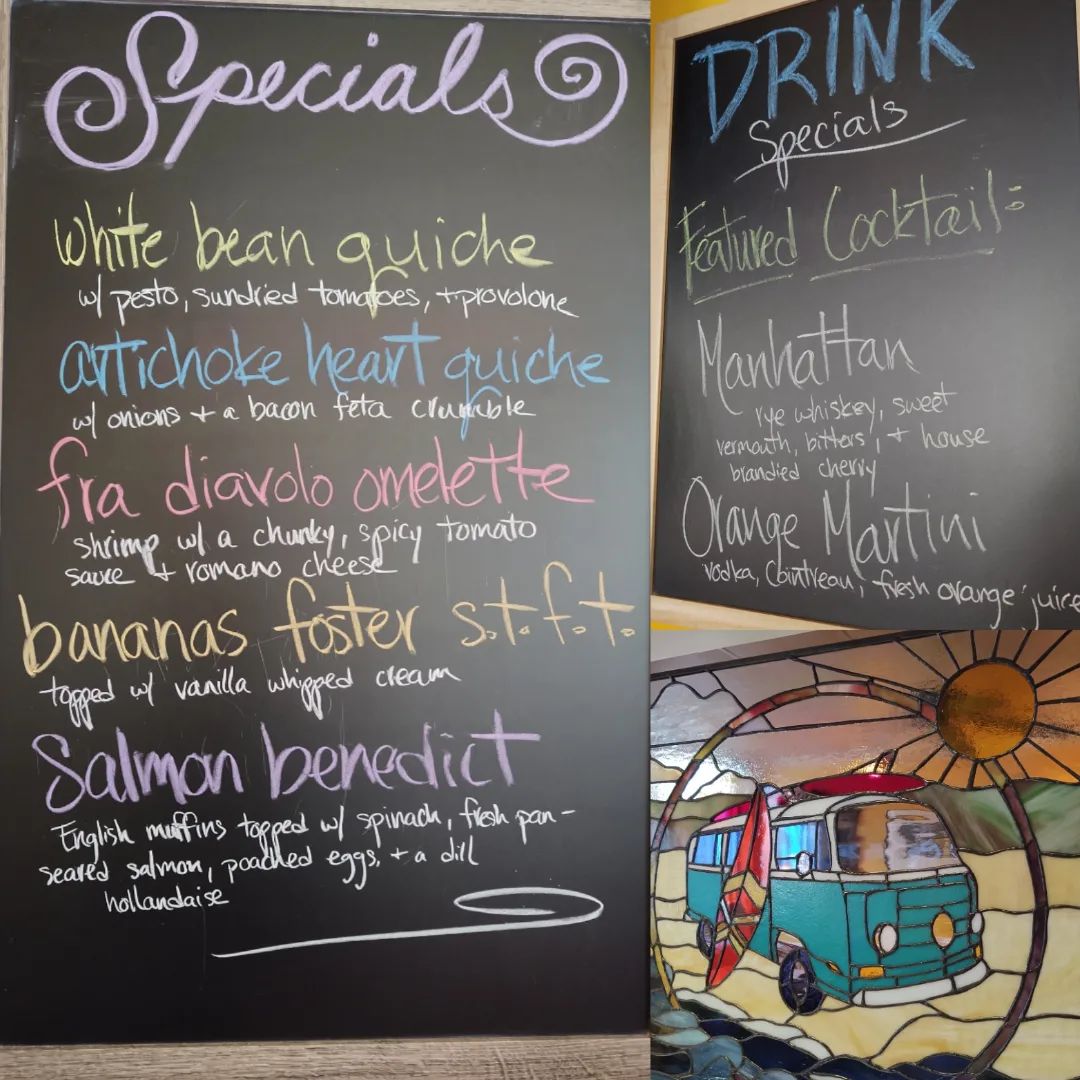 Specials
white bean quiche
w/ pesto, sundried tomatoes, + provolone
artichoke heart quiche
w/ onions + a bacon feta crumble
fra diavolo omelette
shrimp w/ a chunky, spicy tomato
sauce + romano cheese
bananas foster s.t.f.t.
topped w/ vanilla whipped cream
Salmon benedict
English muffins topped w/ spinach, fresh pan-
seared salmon, poached eggs, + a dill
hollandaise
DRINK
Specials
Featured Cocktail:
Manhattan
rye whiskey, sweet
vermouth, bitters, + house
brandied cherry
Orange Martini
vodka, Cointreau, fresh orange juice